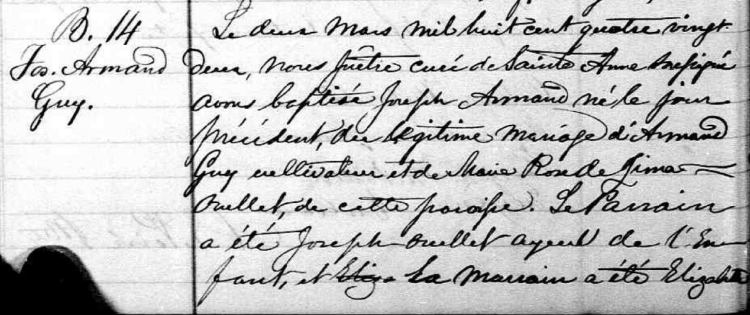 B. 14
Jos. Armand
Guy.
Le deux Mars mil huit cent quatre vingt
deux, nous Prêtre curé de Sainte Anne soussigné
avons baptisé Joseph Armand né le jour
précédent, du légitime mariage d'Armand
Guy cultivateur et de Marie Rose de Lima
Ouellet, de cette paroisse. Le Parrain
a été Joseph Ouellet ayeul de l'En-
fant, et Eliza La Marrain a été Elizabeth